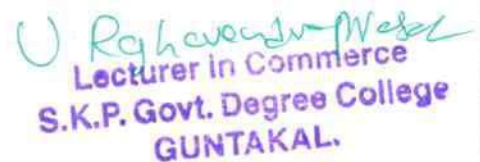 U Raghavendra Prasad
Lecturer in Commerce
S.K.P. Govt. Degree College
GUNTAKAL.